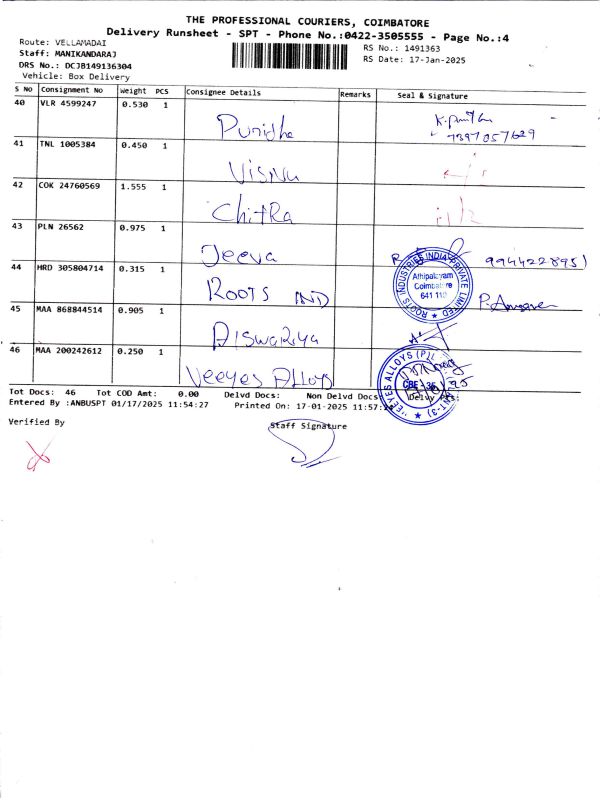 THE PROFESSIONAL COURIERS, COIMBATORE
Delivery Runsheet - SPT - Phone No.:0422-3505555 - Page No.:4
Route: VELLAMADAI
Staff: MANIKANDARAJ
DRS No.: DCJB149136304
Vehicle: Box Delivery
RS No.: 1491363
RS Date: 17-Jan-2025
S No Consignment No Weight PCS Consignee Details Remarks Seal & Signature
40 VLR 4599247 0.530 1
Punidha
7397057629
41 TNL 1005384 0.450 1
Visnu
42 COK 24760569 1.555 1
ChitRa
43 PLN 26562 0.975 1
Jeeva
9944228951
44 HRD 305804714 0.315 1
ROOTS IND
ROOTS INDUSTRIES INDIA PRIVATE LIMITED
Athipalayam
Coimbatore
641 110
45 MAA 868844514 0.905 1
AiswaRiya
46 MAA 200242612 0.250 1
Veeyes Alloys
VEEYES ALLOYS (P)
CBE - 35
Tot Docs: 46 Tot COD Amt: 0.00 Delvd Docs: Non Delvd Docs: Delvy Pcs:
Entered By :ANBUSPT 01/17/2025 11:54:27 Printed On: 17-01-2025 11:57
Verified By
Staff Signature